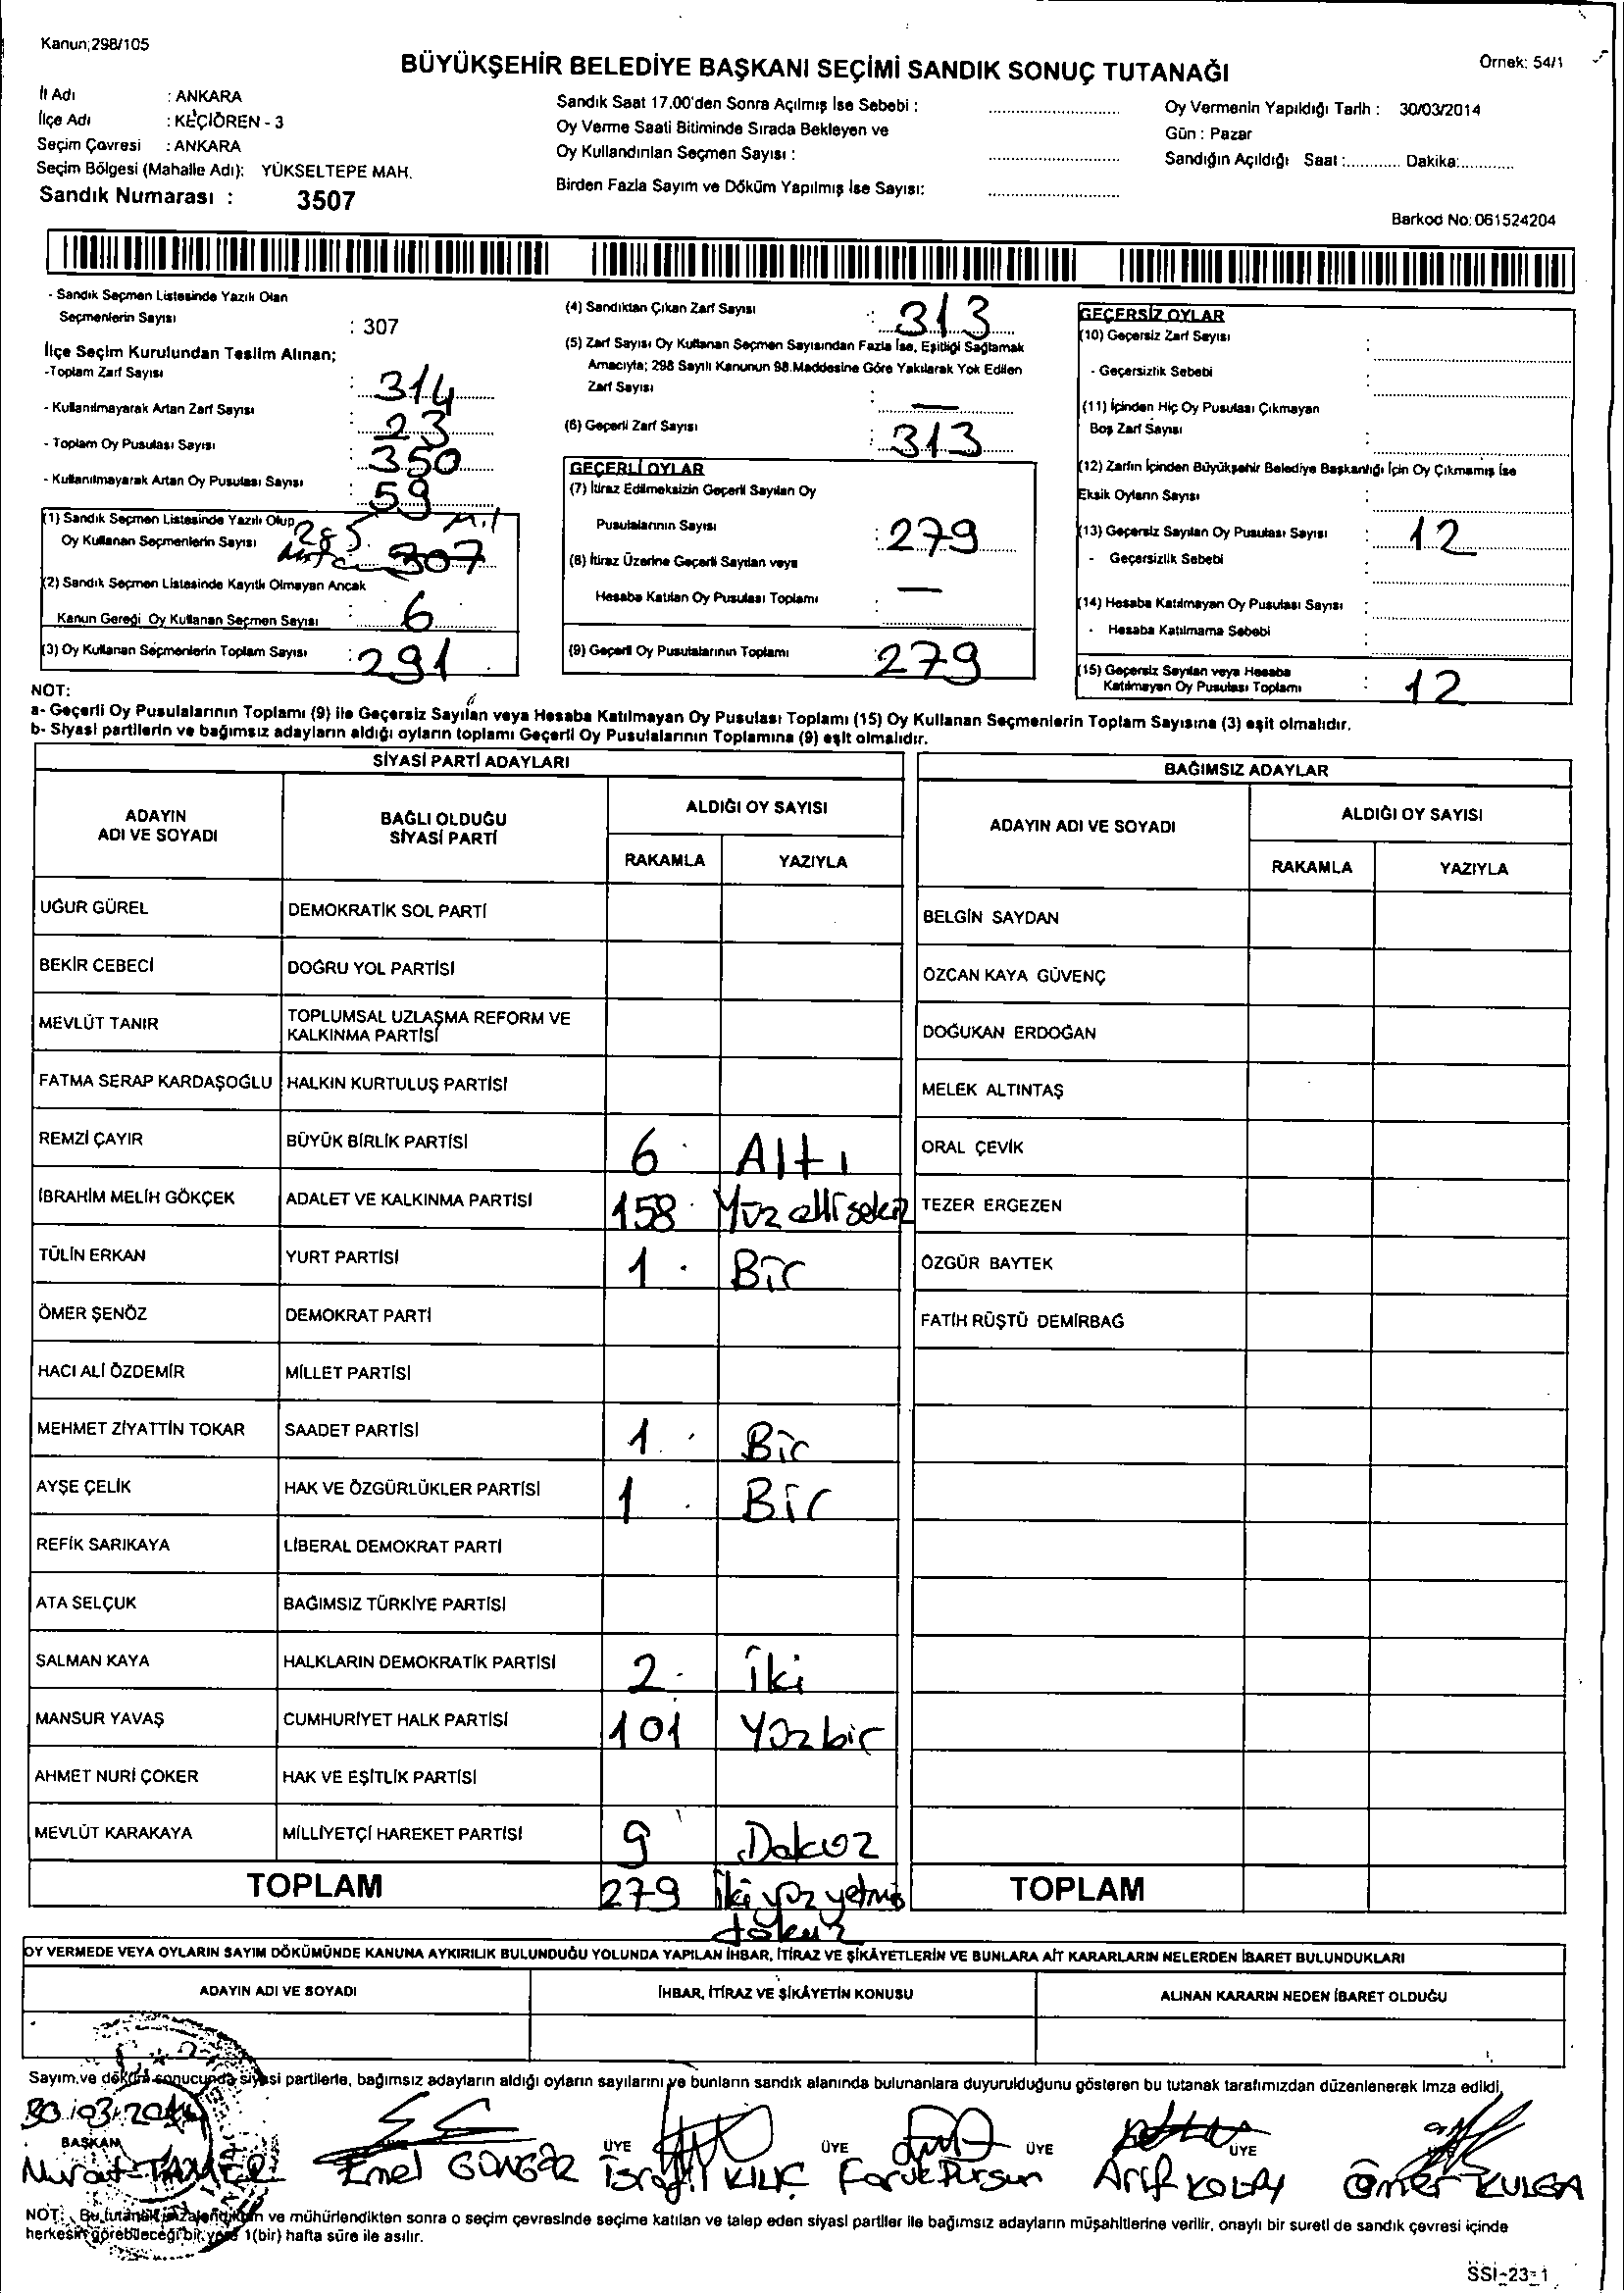 Kanun;298/105
BÜYÜKŞEHİR BELEDİYE BAŞKANI SEÇİMİ SANDIK SONUÇ TUTANAĞI
Örnek: 54/1
İl Adı : ANKARA
İlçe Adı : KEÇİÖREN - 3
Seçim Çevresi : ANKARA
Seçim Bölgesi (Mahalle Adı): YÜKSELTEPE MAH.
Sandık Numarası : 3507
Sandık Saat 17.00'den Sonra Açılmış İse Sebebi :
Oy Verme Saati Bitiminde Sırada Bekleyen ve
Oy Kullandırılan Seçmen Sayısı :
Birden Fazla Sayım ve Döküm Yapılmış İse Sayısı:
Oy Vermenin Yapıldığı Tarih : 30/03/2014
Gün : Pazar
Sandığın Açıldığı Saat :............ Dakika:............
Barkod No: 061524204
- Sandık Seçmen Listesinde Yazılı Olan
Seçmenlerin Sayısı : 307
İlçe Seçim Kurulundan Teslim Alınan;
-Toplam Zarf Sayısı : 314
- Kullanılmayarak Artan Zarf Sayısı : 23
- Toplam Oy Pusulası Sayısı : 350
- Kullanılmayarak Artan Oy Pusulası Sayısı : 59
(1) Sandık Seçmen Listesinde Yazılı Olup
Oy Kullanan Seçmenlerin Sayısı 285 307
(2) Sandık Seçmen Listesinde Kayıtlı Olmayan Ancak
Kanun Gereği Oy Kullanan Seçmen Sayısı : 6
(3) Oy Kullanan Seçmenlerin Toplam Sayısı : 291
(4) Sandıktan Çıkan Zarf Sayısı : 313
(5) Zarf Sayısı Oy Kullanan Seçmen Sayısından Fazla İse, Eşitliği Sağlamak
Amacıyla; 298 Sayılı Kanunun 98.Maddesine Göre Yakılarak Yok Edilen
Zarf Sayısı : —
(6) Geçerli Zarf Sayısı : 313
GEÇERLİ OYLAR
(7) İtiraz Edilmeksizin Geçerli Sayılan Oy
Pusulalarının Sayısı : 279
(8) İtiraz Üzerine Geçerli Sayılan veya
Hesaba Katılan Oy Pusulası Toplamı : —
(9) Geçerli Oy Pusulalarının Toplamı : 279
GEÇERSİZ OYLAR
(10) Geçersiz Zarf Sayısı :
- Geçersizlik Sebebi :
(11) İçinden Hiç Oy Pusulası Çıkmayan
Boş Zarf Sayısı :
(12) Zarfın İçinden Büyükşehir Belediye Başkanlığı İçin Oy Çıkmamış İse
Eksik Oyların Sayısı :
(13) Geçersiz Sayılan Oy Pusulası Sayısı : 12
- Geçersizlik Sebebi :
(14) Hesaba Katılmayan Oy Pusulası Sayısı :
- Hesaba Katılmama Sebebi :
(15) Geçersiz Sayılan veya Hesaba
Katılmayan Oy Pusulası Toplamı : 12
NOT:
a- Geçerli Oy Pusulalarının Toplamı (9) ile Geçersiz Sayılan veya Hesaba Katılmayan Oy Pusulası Toplamı (15) Oy Kullanan Seçmenlerin Toplam Sayısına (3) eşit olmalıdır.
b- Siyasi partilerin ve bağımsız adayların aldığı oyların toplamı Geçerli Oy Pusulalarının Toplamına (9) eşit olmalıdır.
SİYASİ PARTİ ADAYLARI
ADAYIN ADI VE SOYADI
BAĞLI OLDUĞU SİYASİ PARTİ
ALDIĞI OY SAYISI
RAKAMLA YAZIYLA
UĞUR GÜREL DEMOKRATİK SOL PARTİ
BEKİR CEBECİ DOĞRU YOL PARTİSİ
MEVLÜT TANIR TOPLUMSAL UZLAŞMA REFORM VE KALKINMA PARTİSİ
FATMA SERAP KARDAŞOĞLU HALKIN KURTULUŞ PARTİSİ
REMZİ ÇAYIR BÜYÜK BİRLİK PARTİSİ 6 Altı
İBRAHİM MELİH GÖKÇEK ADALET VE KALKINMA PARTİSİ 158 Yüz elli sekiz
TÜLİN ERKAN YURT PARTİSİ 1 Bir
ÖMER ŞENÖZ DEMOKRAT PARTİ
HACI ALİ ÖZDEMİR MİLLET PARTİSİ
MEHMET ZİYATTİN TOKAR SAADET PARTİSİ 1 Bir
AYŞE ÇELİK HAK VE ÖZGÜRLÜKLER PARTİSİ 1 Bir
REFİK SARIKAYA LİBERAL DEMOKRAT PARTİ
ATA SELÇUK BAĞIMSIZ TÜRKİYE PARTİSİ
SALMAN KAYA HALKLARIN DEMOKRATİK PARTİSİ 2 İki
MANSUR YAVAŞ CUMHURİYET HALK PARTİSİ 101 Yüzbir
AHMET NURİ ÇOKER HAK VE EŞİTLİK PARTİSİ
MEVLÜT KARAKAYA MİLLİYETÇİ HAREKET PARTİSİ 9 Dokuz
TOPLAM 279 İki yüz yetmiş dokuz
BAĞIMSIZ ADAYLAR
ADAYIN ADI VE SOYADI
ALDIĞI OY SAYISI
RAKAMLA YAZIYLA
BELGİN SAYDAN
ÖZCAN KAYA GÜVENÇ
DOĞUKAN ERDOĞAN
MELEK ALTINTAŞ
ORAL ÇEVİK
TEZER ERGEZEN
ÖZGÜR BAYTEK
FATİH RÜŞTÜ DEMİRBAĞ
TOPLAM
OY VERMEDE VEYA OYLARIN SAYIM DÖKÜMÜNDE KANUNA AYKIRILIK BULUNDUĞU YOLUNDA YAPILAN İHBAR, İTİRAZ VE ŞİKÂYETLERİN VE BUNLARA AİT KARARLARIN NELERDEN İBARET BULUNDUKLARI
ADAYIN ADI VE SOYADI
İHBAR, İTİRAZ VE ŞİKÂYETİN KONUSU
ALINAN KARARIN NEDEN İBARET OLDUĞU
Sayım ve döküm sonucunda siyasi partilerle, bağımsız adayların aldığı oyların sayılarını ve bunların sandık alanında bulunanlara duyurulduğunu gösteren bu tutanak tarafımızdan düzenlenerek imza edildi.
30.03.2014
BAŞKAN ÜYE ÜYE ÜYE ÜYE ÜYE
Murat TAMER Emel GÜNGÖR İsrafil KILIÇ Faruk Dursun Arif KOLAY Ömer KULGA
NOT: Bu tutanak imzalandıktan ve mühürlendikten sonra o seçim çevresinde seçime katılan ve talep eden siyasi partiler ile bağımsız adayların müşahitlerine verilir, onaylı bir sureti de sandık çevresi içinde
herkesin görebileceği bir yere 1(bir) hafta süre ile asılır.
SSI-23-1